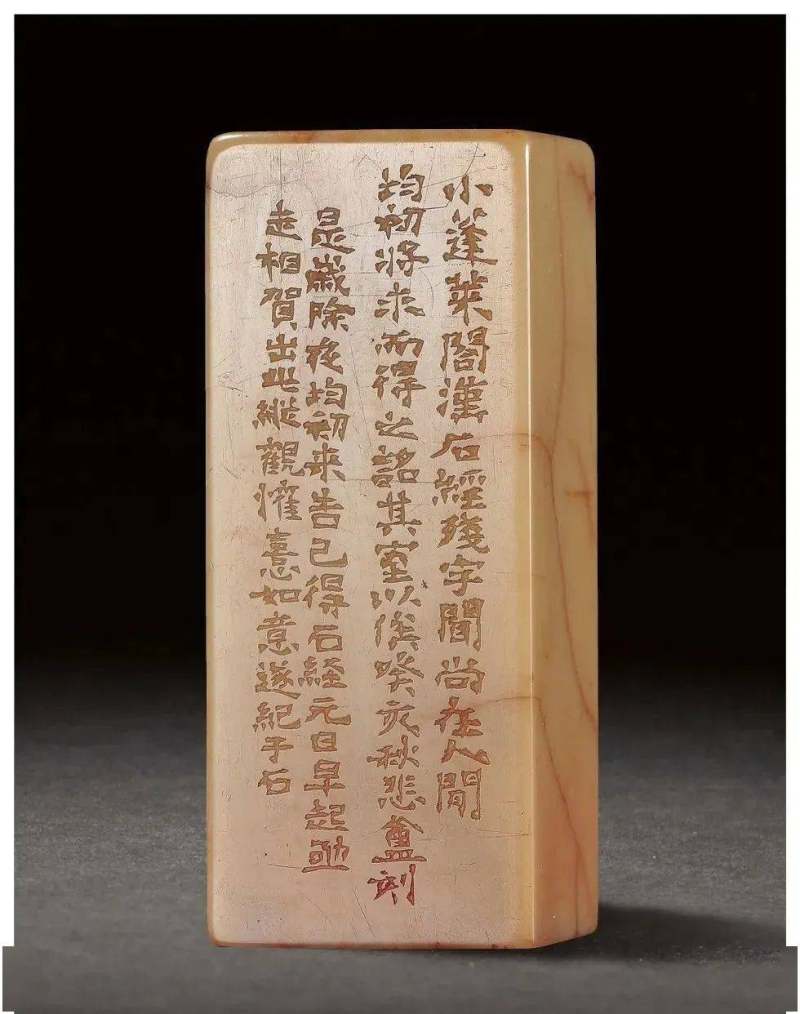 小蓬萊閣漢石經殘字聞尚在人間
均初將求而得之詺其室以俟癸亥秋悲盦刻
是歲除夜均初来告已得石經元日早起亟
走相賀出此縱觀懽憙如意遂紀于石